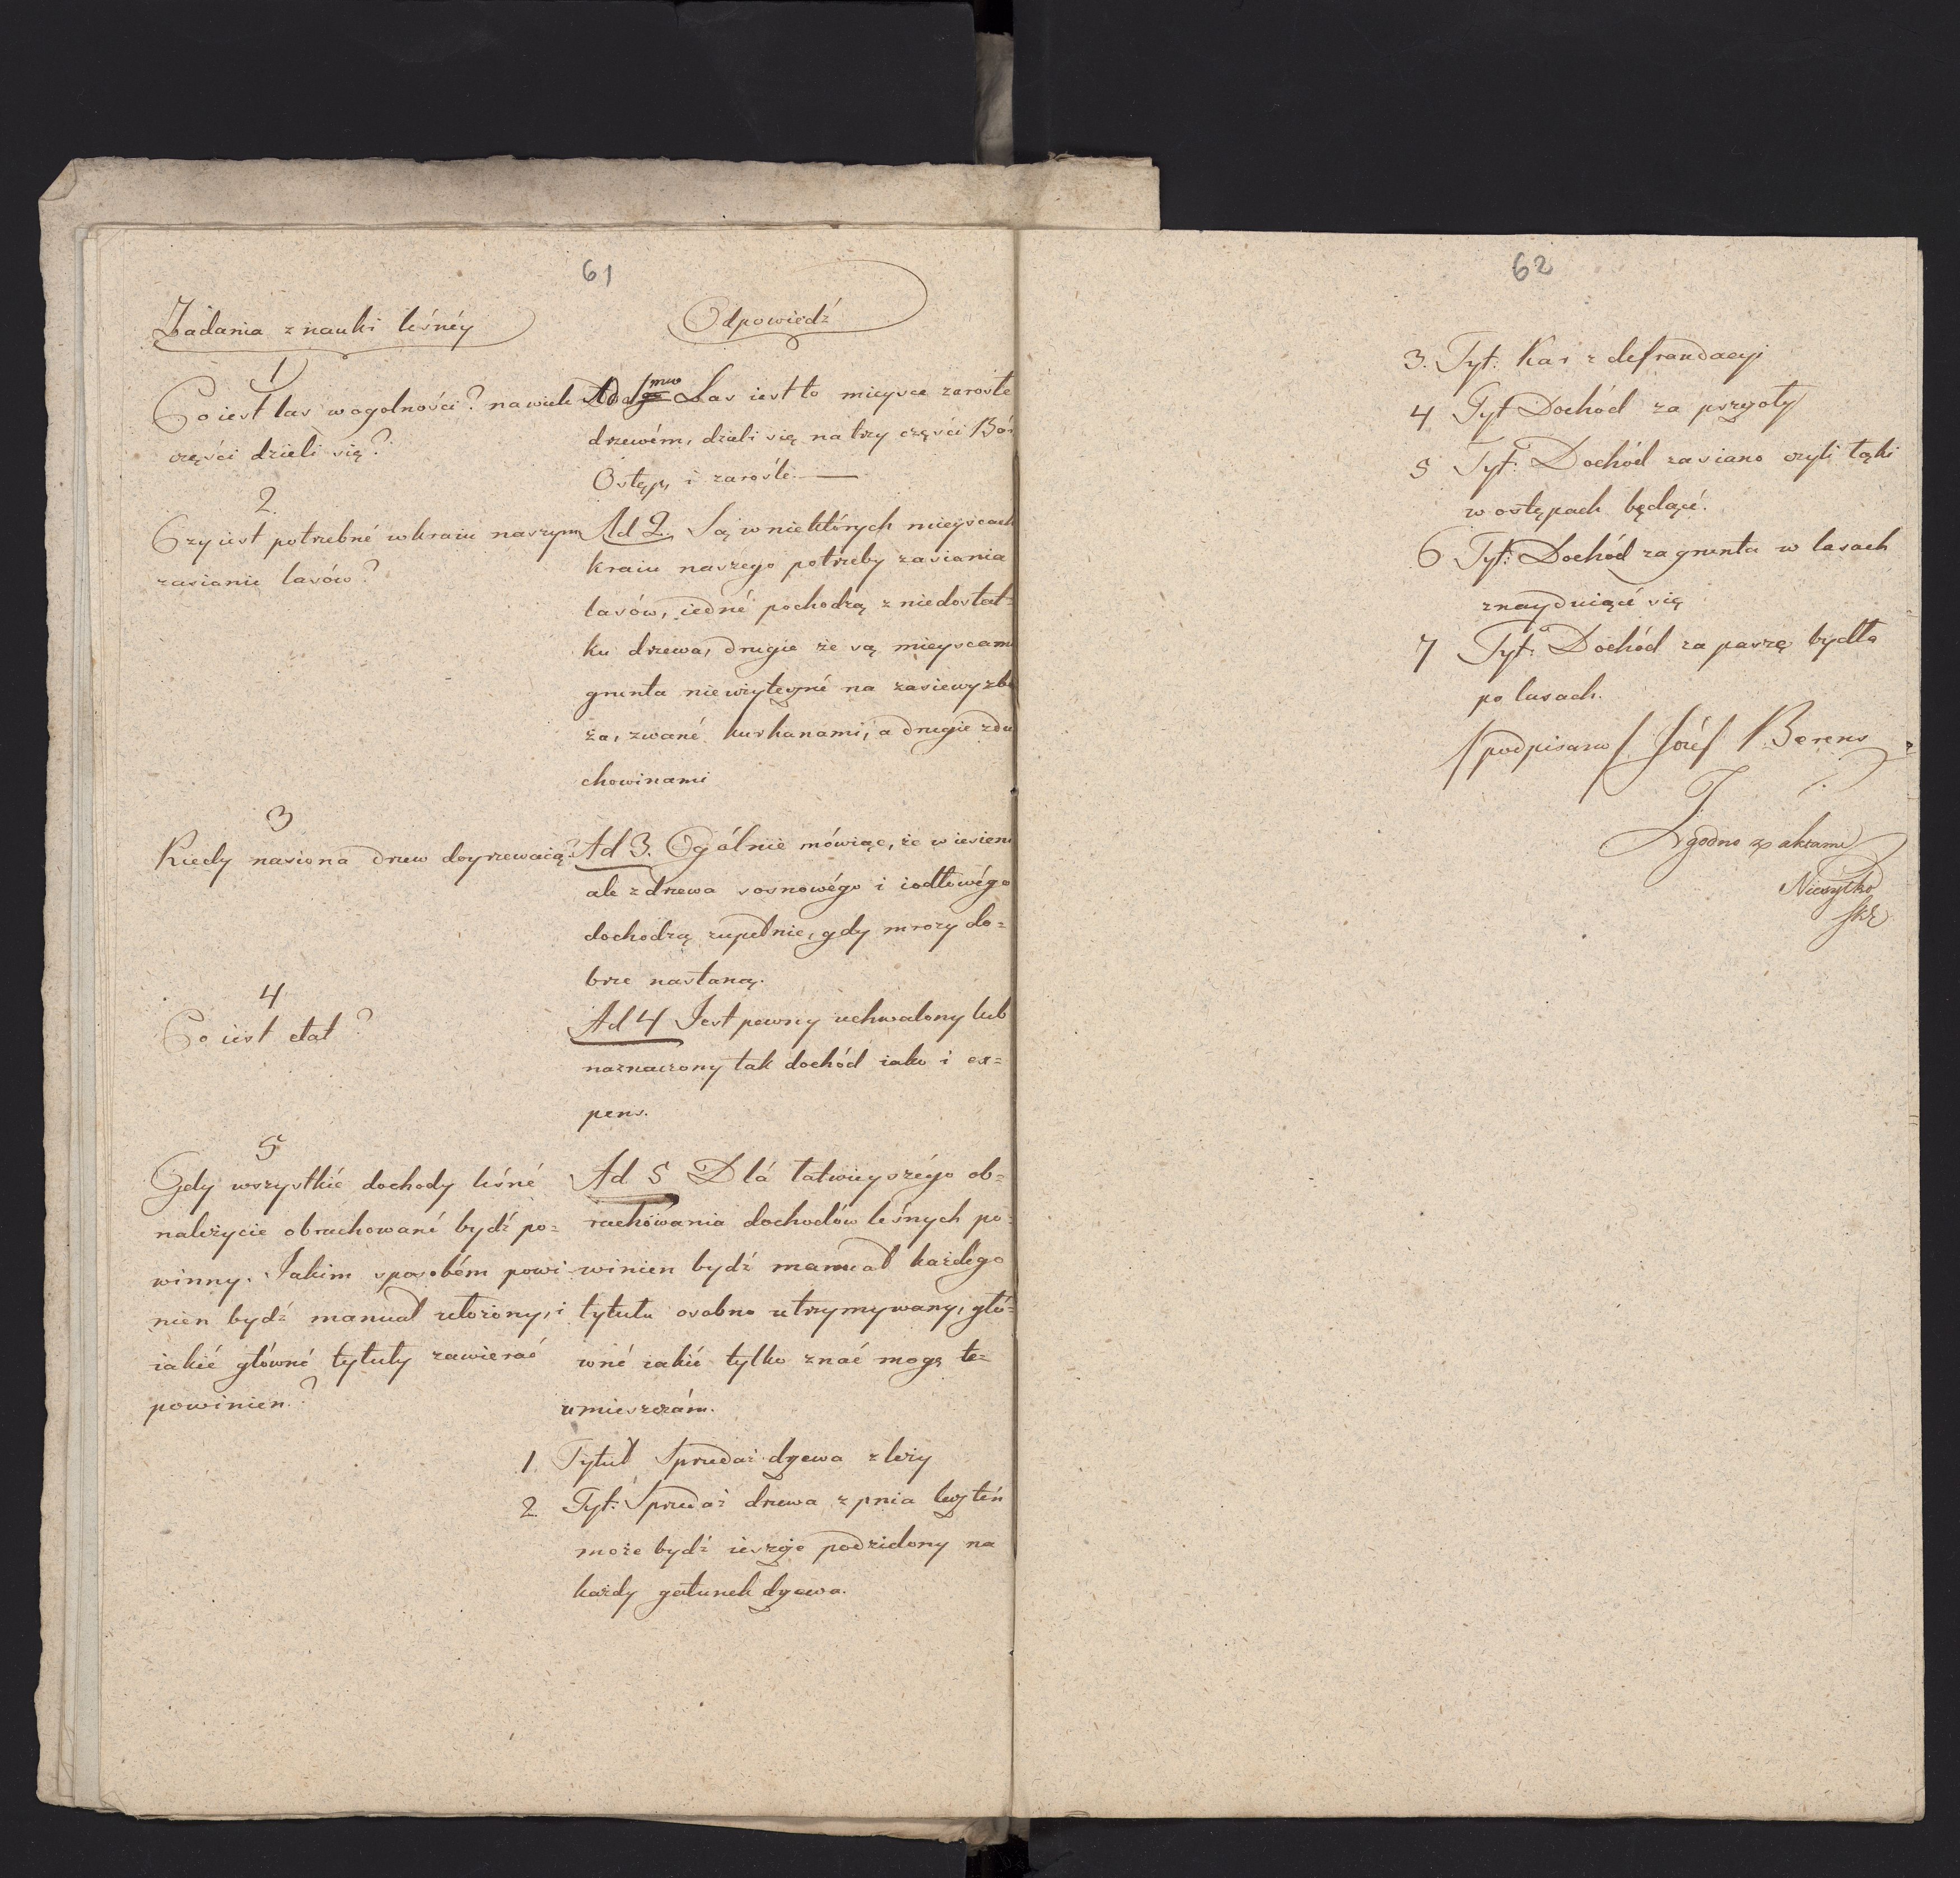 61
Zadania z nauki leśnéy
1
Co iest las w ogolności? na wiele
części dzieli się?
2.
Czy iest potrzebné w kraiu naszym
zasianié lasów?
3
Kiedy nasiona drzew doyrzewaią?
4
Co iest etat?
5
Gdy wszystkié dochody leśné
należycie obrachowané bydź po=
winny. Jakim sposobém powi
nien bydź manuał ułożony, i
iakié główné tytuły zawierać
powinien?
Odpowiedź
Ad 1mo Las iest to mieysce zarosłe
drzewém, dzieli się na trzy części Bór
Ostęp, i zarośle.—
Ad 2. Są w niektórych mieyscach
kraiu naszego potrzeby zasiania
lasów, iedné pochodzą z niedostat=
ku drzewa, drugie że są mieyscami
grunta nieużyteczné na zasiewy zbo
ża, zwané kurhanami, a drugie zdu
chowinami
Ad 3. Ogólnie mówiąc, że w iesieni
ale z drzewa sosnowégo i iodłowégo
dochodzą zupełnie, gdy mrozy do=
brze nastaną.
Ad 4 Jest pewny uchwalony lub
naznaczony tak dochód iako i ex=
pens.
Ad 5 Dlá łatwieyszégo ob=
rachowania dochodów leśnych po=
winien bydź manuał każdego
tytułu osobno utrzymywany, głó=
wné iakié tylko znać mogę te=
umieszczám.
1 Tytuł Sprzedaż drzewa z leży
2 Tyt: Sprzedaż drzewa z pnia lecz tén
może bydź ieszcze podzielony na
każdy gatunek drzewa.
62
3. Tyt: Kar z defraudacyi
4 Tyt Dochód za pszczoły
5 Tyt: Dochód za siano czyli łąki
w ostępach będącé.
6 Tyt: Dochód za grunta w lasach
znayduiącé się
7 Tyt: Dochód za paszę bydła
po lasach.
/podpisano/ Józef Berens
Zgodno z aktami